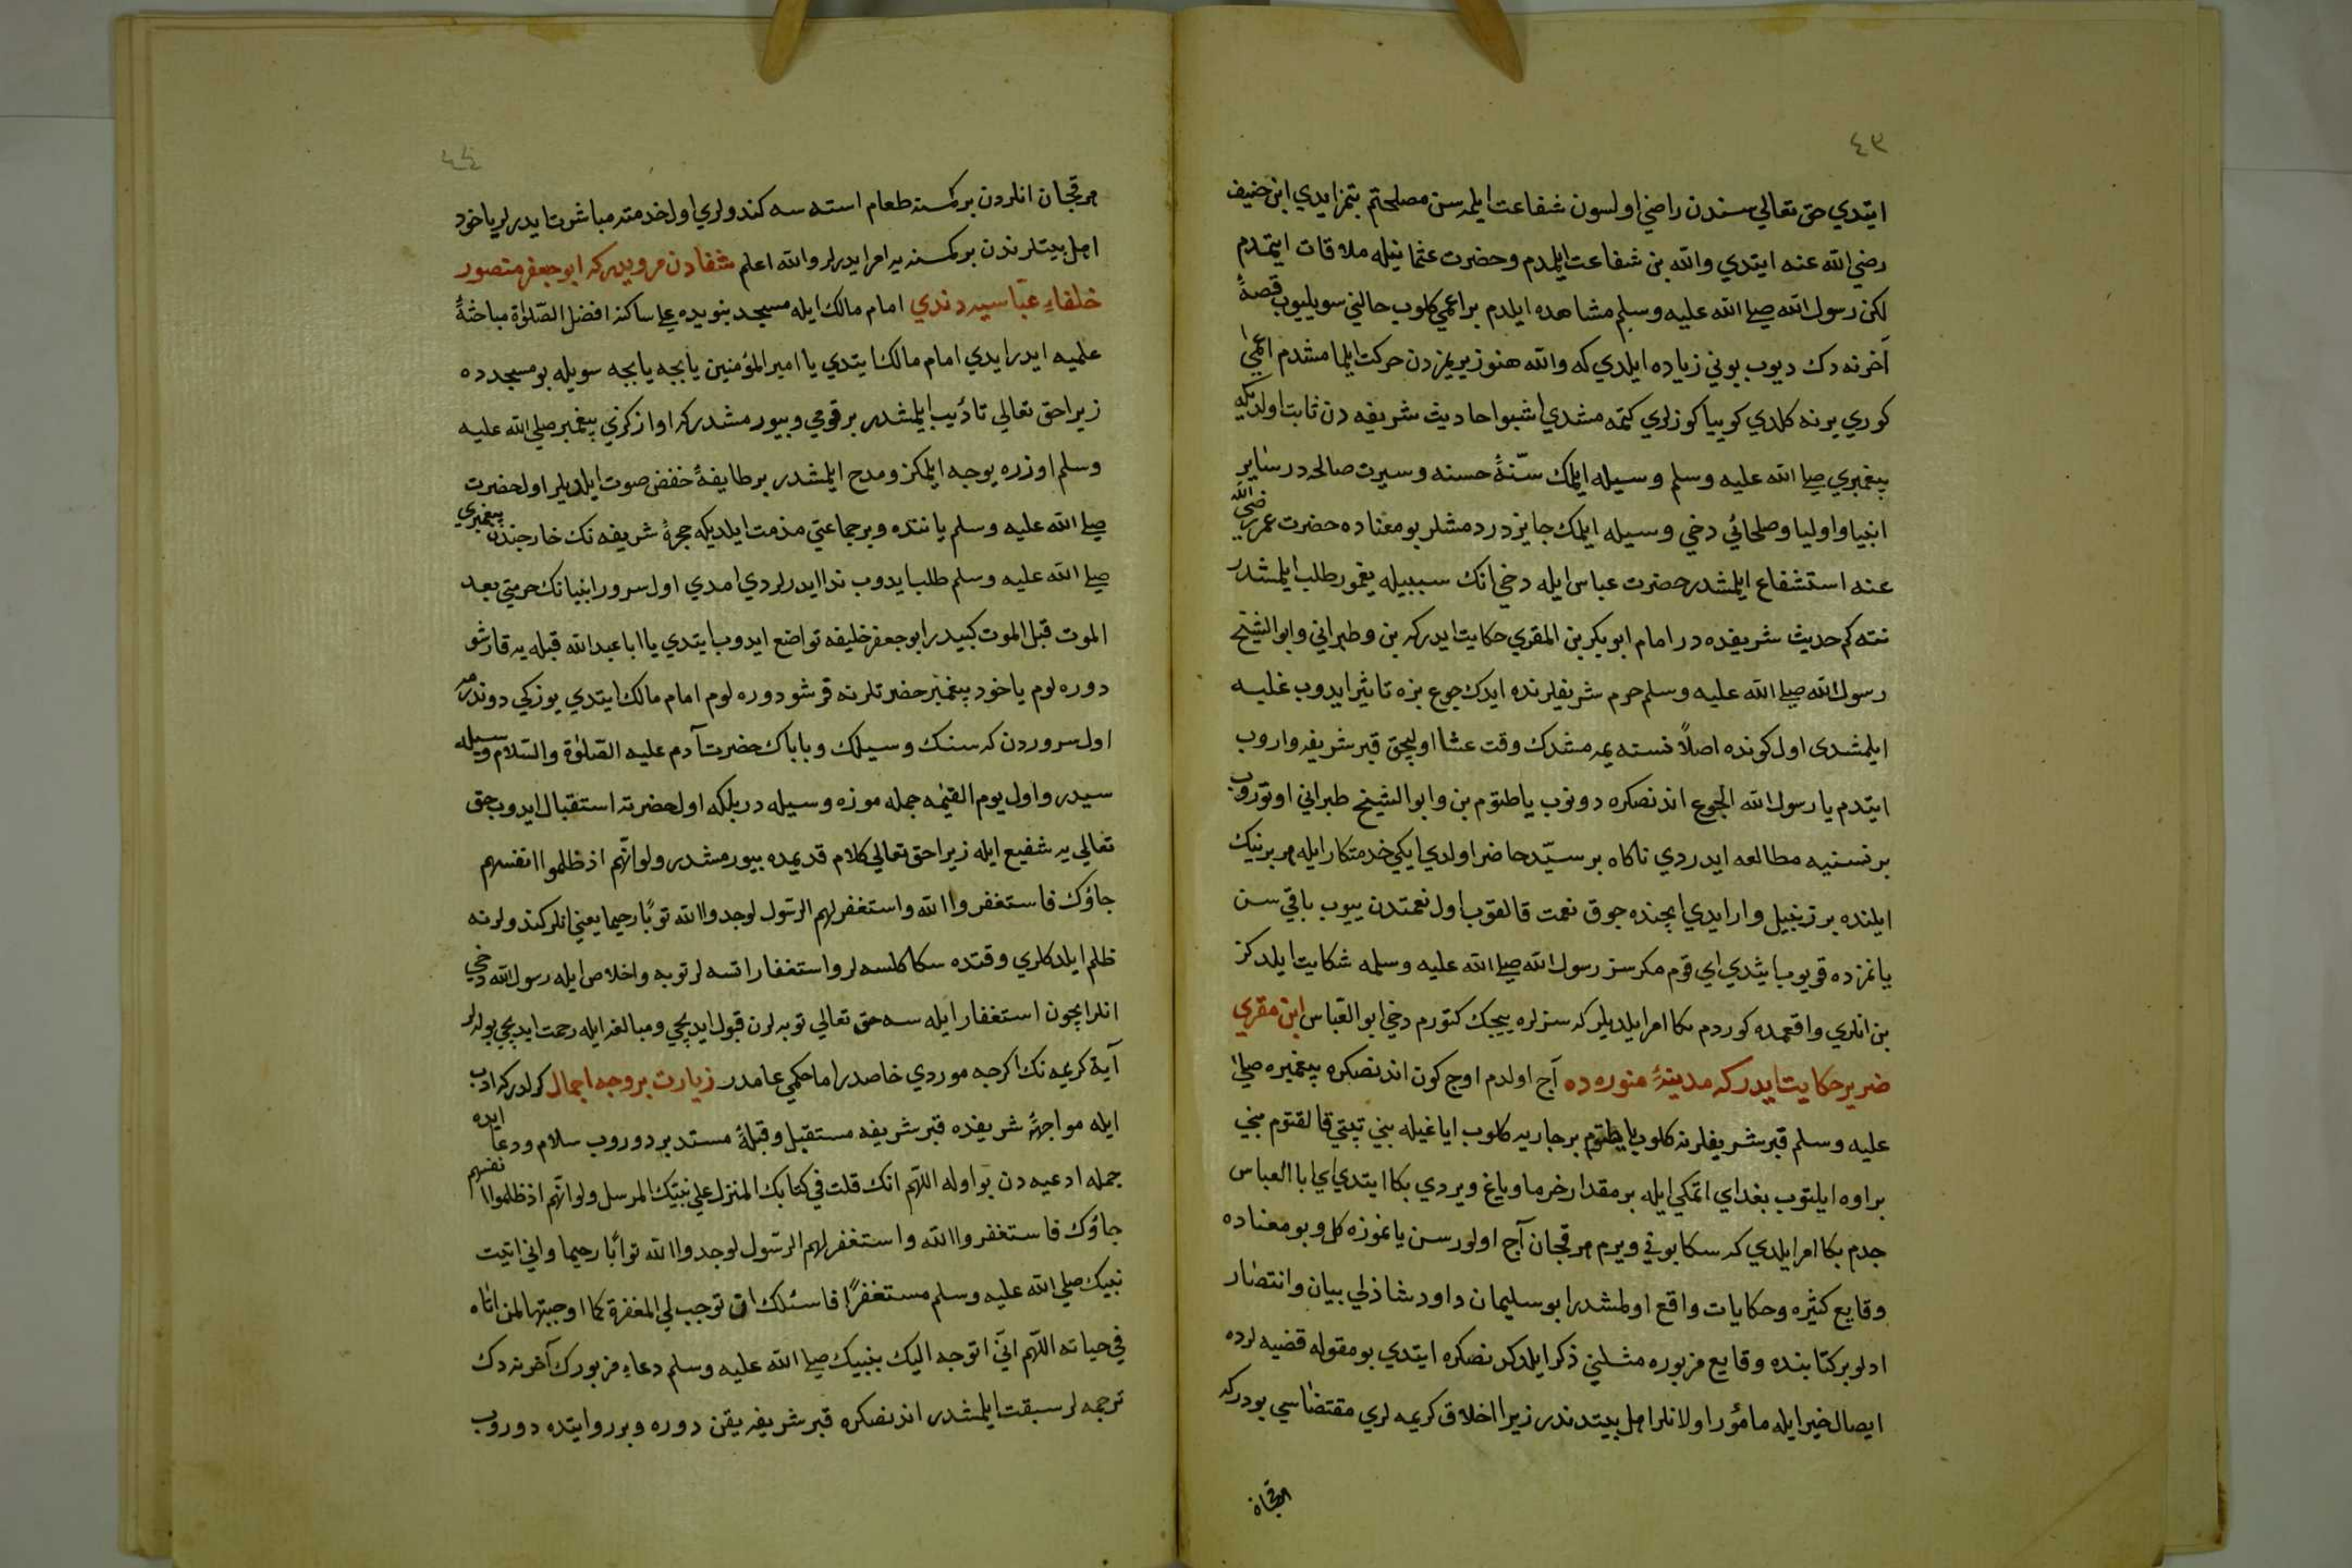 ٤٣
ايتدي حق تعالي سندن راضي اولسون شفاعت ايلمه سن مصلحتم بتمز ايدي ابن حنيف
رضي الله عنه ايتدي والله بن شفاعت ايلمدم وحضرت عثمانيله ملاقات ايتمدم
لكن رسول الله صلي الله عليه وسلم مشاهده ايلدم بر اعمي كلوب حالني سويليوب قصهٔ
آخرنه دك ديوب بوني زياده ايلدي كه والله هنوز يريمزدن حركت ايلمامشدم اعمي
كوري يرنه كلدي كوييا كوزلري كتمه مشدي اشبو احاديث شريفه دن ثابت اولديكه
پيغمبري صلي الله عليه وسلم وسيله ايلمك سنّهٔ حسنه وسيرت صالحه در سٰاير
انبيا واوليا وصلحائي دخي وسيله ايلمك جايزدر دمشلر بو معناده حضرت عمر رضي الله
عنه استشفاع ايلمشدر حضرت عباس ايله دخي انك سببيله يغمور طلب ايلمشدر
نته كم حديث شريفده در امام ابو بكر بن المقري حكايت ايدر كه بن وطبراني وابو الشيخ
رسول الله صلي الله عليه وسلم حرم شريفلرنده ايدك جوع بزه تاثير ايدوب غلبه
ايلمشدى اول كونده اصلاً نسنه يمه مشدك وقت عشا اوليجق قبر شريفه واروب
ايتدم يا رسول الله الجوع اندنصكره دونوب ياطتوم بن وابو الشيخ طبراني اوتوروب
بر نسنيه مطالعه ايدردي ناكاه بر سيّد حاضر اولدي ايكي خدمتكار ايله هر برينك
ايلنده بر زنبيل وار ايدي ايچنده چوق نعمت قالقوب اول نعمتدن ييوب باقي سن
يانمزده قويوب ايتدي اي قوم مكر سز رسول الله صلي الله عليه وسلمه شكايت ايلدكز
بن انلري واقعمده كوردم بكا امر ايلديلر كه سزلره ييجك كتورم دخي ابو العباس ابن مقري
ضرير حكايت ايدر كه مدينهٔ منوره ده آج اولدم اوچ كون اندنصكره پيغمبره صلي الله
عليه وسلم قبر شريفلرنه كلوب ياطتوم بر جاريه كلوب اياغيله بني تپتي قالقتوم بني
بر اوه ايلتوب بغداي اتمكي ايله بر مقدار خرما وياغ ويردي بكا ايتدي اي ابا العباس
جدم بكا امر ايلدي كه سكا بوني ويرم هر قچان آج اولورسن يانموزه كل وبو معناده
وقايع كثيره وحكايات واقع اولمشدر ابو سليمان داود شاذلي بيان وانتصار
ادلو بر كتابنده وقايع مزبوره مثليني ذكر ايلدكدنصكره ايتدي بو مقوله قضيه لرده
ايصال خير ايله مأمور اولانلر اهل بيتدندر زيرا اخلاق كريمه لري مقتضاسي بودر كه
هر قچان
٤٤
هر قچان انلردن بر كسنه طعام استه سه كندولري اول خدمته مباشرت ايدرلر ياخود
اهل بيتلرندن بر كسنه يه امر ايدرلر والله اعلم شفادن مرويدر كه ابو جعفر منصور
خلفاءِ عباسيه دندي امام مالك ايله مسجد نبويده علي ساكنه افضل الصّلوٰة مباحثهٔ
علميه ايدر ايدي امام مالك ايتدي يا امير المؤمنين يابجه يابجه سويله بو مسجدده
زيرا حق تعالي تأديب ايلمشدر بر قومي وبيورمشدر كه اوازكزي پيغمبر صلي الله عليه
وسلم اوزره يوجه ايلمكز ومدح ايلمشدر بر طايفهٔ خفض صوت ايلديلر اولحضرت
صلي الله عليه وسلم ياننده وبر جماعتي مذمت ايلديكه حجرهٔ شريفه نك خارجندن پيغمبري
صلي الله عليه وسلم طلب ايدوب ندا ايدرلردي امدي اول سرور انبيانك حرمتي بعد
الموت قبل الموت كبيدر ابو جعفر خليفه تواضع ايدوب ايتدي يا ابا عبد الله قبله يه قارشو
دوره لوم ياخود پيغمبر حضرتلرنه قرشو دوره لوم امام مالك ايتدي يوزكي دوندرمه
اول سروردن كه سنك وسيلك وباباك حضرت آدم عليه الصّلوٰة والسّلام وسيله
سيدر واول يوم القيٰمه جمله موزه وسيله در بلكه اولحضرته استقبال ايدوب حق
تعالي يه شفيع ايله زيرا حق تعالي كلام قديمده بيورمشدر ولو انّهم اذ ظلموا انفسهم
جاؤك فاستغفروا الله واستغفر لهم الرسول لوجدوا الله توّابا رحيما يعني انلر كندولرنه
ظلم ايلدكلري وقتده سكا كلسه لر واستغفار اتسه لر توبه واخلاص ايله رسول الله دخي
انلر ايچون استغفار ايله سه حق تعالي توبه لرن قبول ايديجي ومبالغه ايله رحمت ايديجي بولدلر
آية كريمه نك اكرچه موردي خاصدر اما حكمي عامدر زيارت بر وجه اجمال كولدر كه ادب
ايله مواجههٔ شريفده قبر شريفه مستقبل وقبلهٔ مستدبر دوروب سلام ودعا ايده
جمله ادعيه دن بو اوله اللّهم انك قلت في كتابك المنزل علي نبيّك المرسل ولو انّهم اذ ظلموا انفسهم
جاؤك فاستغفروا الله واستغفر لهم الرسول لوجدوا الله توّابا رحيما واني اتيت
نبيك صلي الله عليه وسلم مستغفرًا فاسئلك ان توجب لي المغفرة كما اوجبتها لمن اتاه
في حياته اللّهم انّي اتوجه اليك بنبيك صلي الله عليه وسلم دعاءِ مزبورك آخرنه دك
ترجمه لر سبقت ايلمشدر اندنصكره قبر شريفه يقن دوره وبر روايتده دوروب